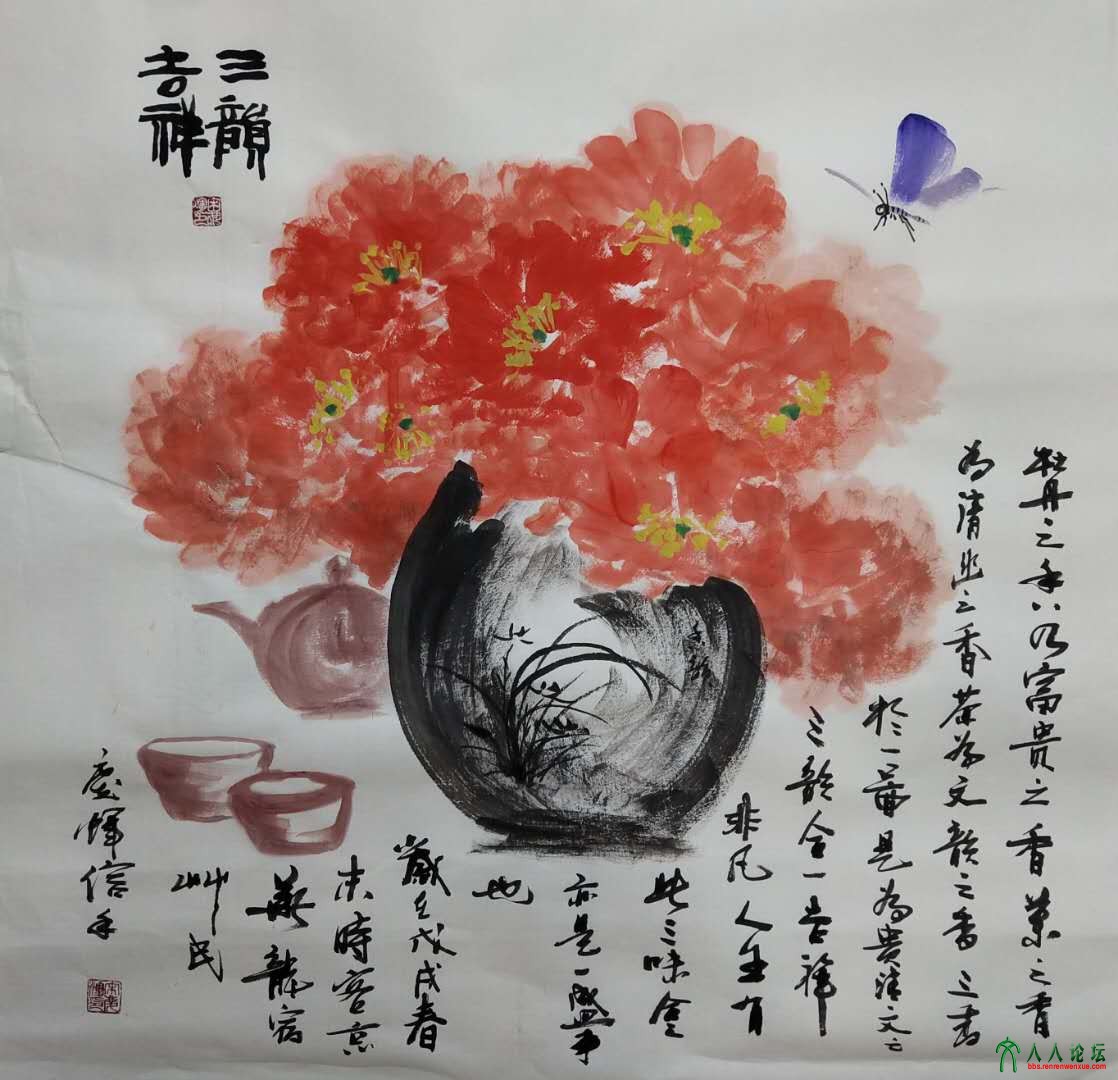 三韻
吉祥
牡丹之富贵之香之香
为清幽之香茶为文韵之香三香
於一是为贵清文之
三韵合一吉祥
非凡人生有
此三味
亦是一盛事
也
歲在戊戌春
末時客京
龍宿
民
慶輝信手
人人论坛
bbs.renrenwenxue.com